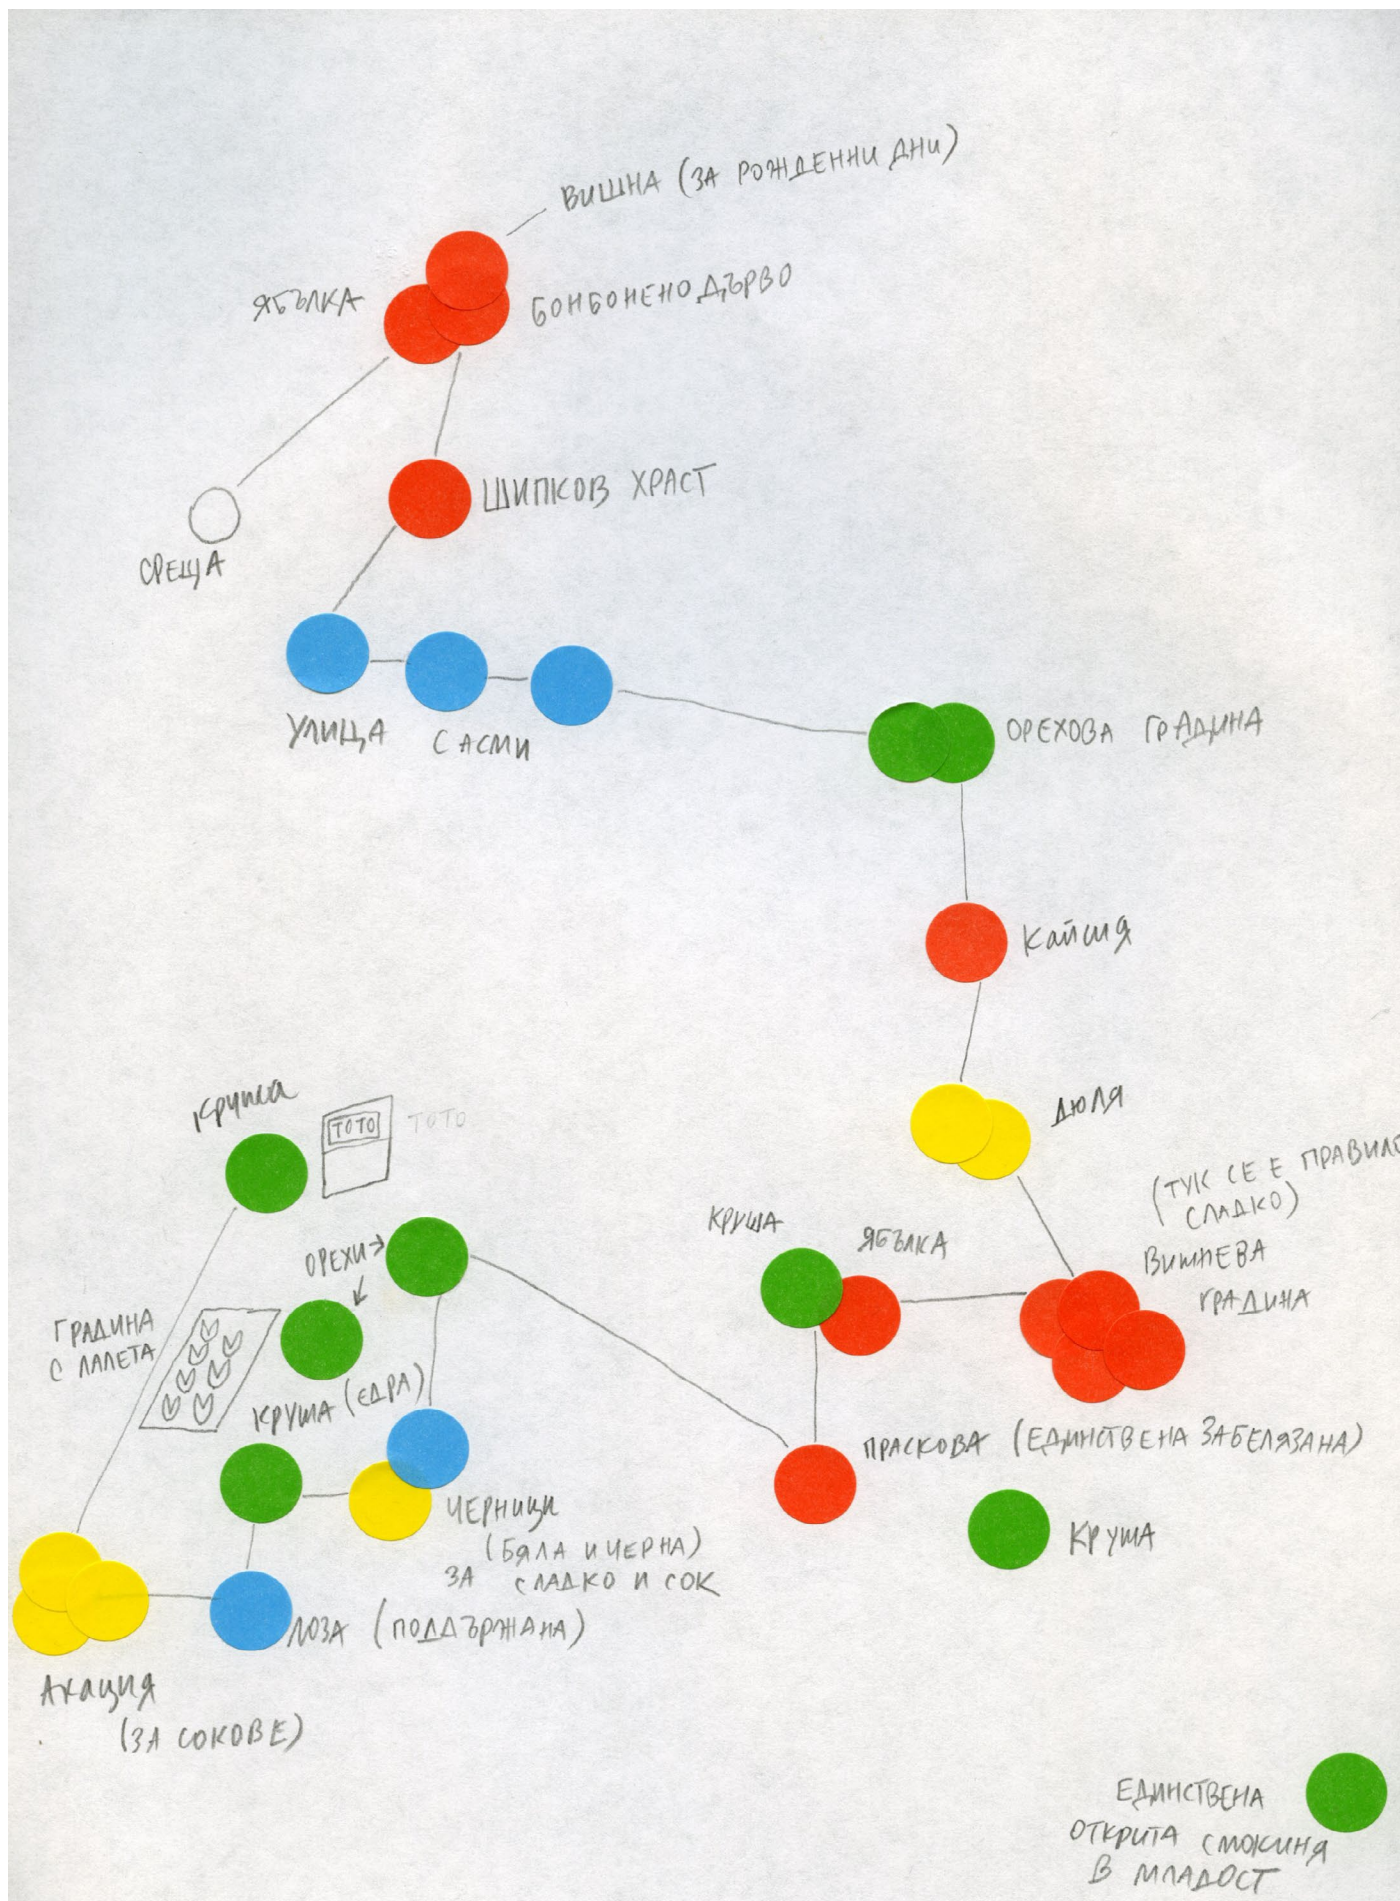 ВИШНА (ЗА РОЖДЕННИ ДНИ)
ЯБЪЛКА
БОНБОНЕНО ДЪРВО
ШИПКОВ ХРАСТ
СРЕЩА
УЛИЦА
С АСМИ
ОРЕХОВА ГРАДИНА
Кайсия
ДЮЛЯ
(ТУК СЕ Е
СЛАДКО)
ВИШНЕВА
ГРАДИНА
КРУША
ЯБЪЛКА
ПРАСКОВА (ЕДИНСТВЕНА ЗАБЕЛЯЗАНА)
КРУША
Круша
ТОТО
ТОТО
ОРЕХИ
ГРАДИНА
С ЛАЛЕТА
КРУША (ЕДРА)
ЧЕРНИЦИ
(БЯЛА И ЧЕРНА)
ЗА СЛАДКО И СОК
ЛОЗА (ПОДДЪРЖАНА)
Акация
(ЗА СОКОВЕ)
ЕДИНСТВЕНА
ОТКРИТА СМОКИНЯ
В МЛАДОСТ